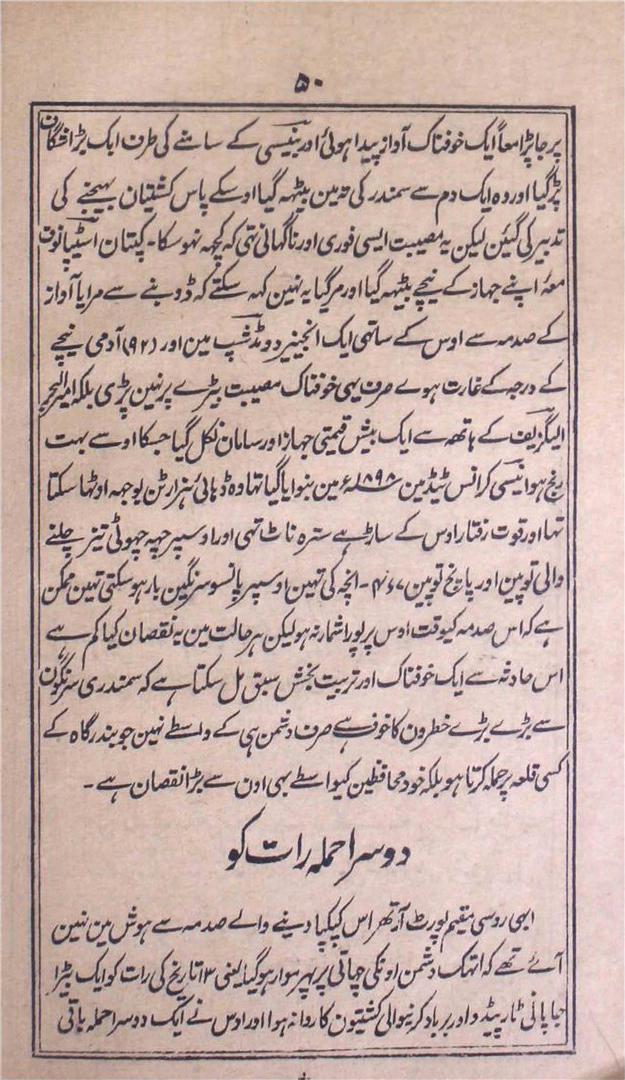 ۵۰
پر جا پڑا معاً ایک خوفناک آواز پیدا ہوئی اور ینیسی کے سامنے کی طرف ایک بڑا شگاف
پڑ گیا اور وہ ایک دم سے سمندر کی تہ مین بیٹھہ گیا اوسکے پاس کشتیان بھیجنے کی
تدبیر کی گئین لیکن یہ مصیبت ایسی فوری اور ناگہانی تہی کہ کچھہ نہو سکا۔ کپتان اسٹیپانوف
معہ اپنے جہاز کے نیچے بیٹھہ گیا اور مرگیا یہ نہین کہہ سکتے کہ ڈوبنے سے مرا یا آواز
کے صدمہ سے اوس کے ساتھی ایک انجینیر دو مڈشپ مین اور (۹۲) آدمی نیچے
کے درجہ کے غارت ہوے صرف یہی خوفناک مصیبت بیڑے پر نہین پڑی بلکہ امیرالبحر
الیگزیف کے ہاتھہ سے ایک بیش قیمتی جہاز اور سامان نکل گیا جسکا اوسے بہت
رنج ہوا ینیسی کرانس ٹیڈ مین ۱۸۹۸ء مین بنوایا گیا تہا وہ ڈہائی ہزار ٹن بوجہہ اوٹھا سکتا
تہا اور قوت رفتار اوس کے ساڑہے سترہ ناٹ تہی اور اوسپر چھہ چھوٹی تیز چلنے
والی توپین اور پانچ توپین ۴ء۶۷۔ انچہ کی تہین اوسپر پانسو سرنگین بار ہو سکتی تہین ممکن
ہے کہ اس صدمہ کیوقت اوس پر پورا شمار نہ ہو لیکن ہر حالت مین یہ نقصان کیا کم ہے
اس حادثہ سے ایک خوفناک اور تربیت بخش سبق مل سکتا ہے کہ سمندری سرنگون
سے بڑے بڑے خطرون کا خوف ہے صرف دشمن ہی کے واسطے نہین جو بندرگاہ کے
کسی قلعہ پر حملہ کرتا ہو بلکہ خود محافظین کیواسطے بہی اون سے بڑا نقصان ہے۔
دوسرا حملہ رات کو
ابہی روسی مقیم پورٹ آرتھر اس کپکپا دینے والے صدمہ سے ہوش مین نہین
آئے تھے کہ انتھک دشمن اونکی چھاتی پر پہر سوار ہوگیا یعنی ۱۳ تاریخ کی رات کو ایک بیڑا
جاپانی ٹارپیڈو اور برباد کرنیوالی کشتیون کا روانہ ہوا اور اوس نے ایک دوسرا حملہ باقی